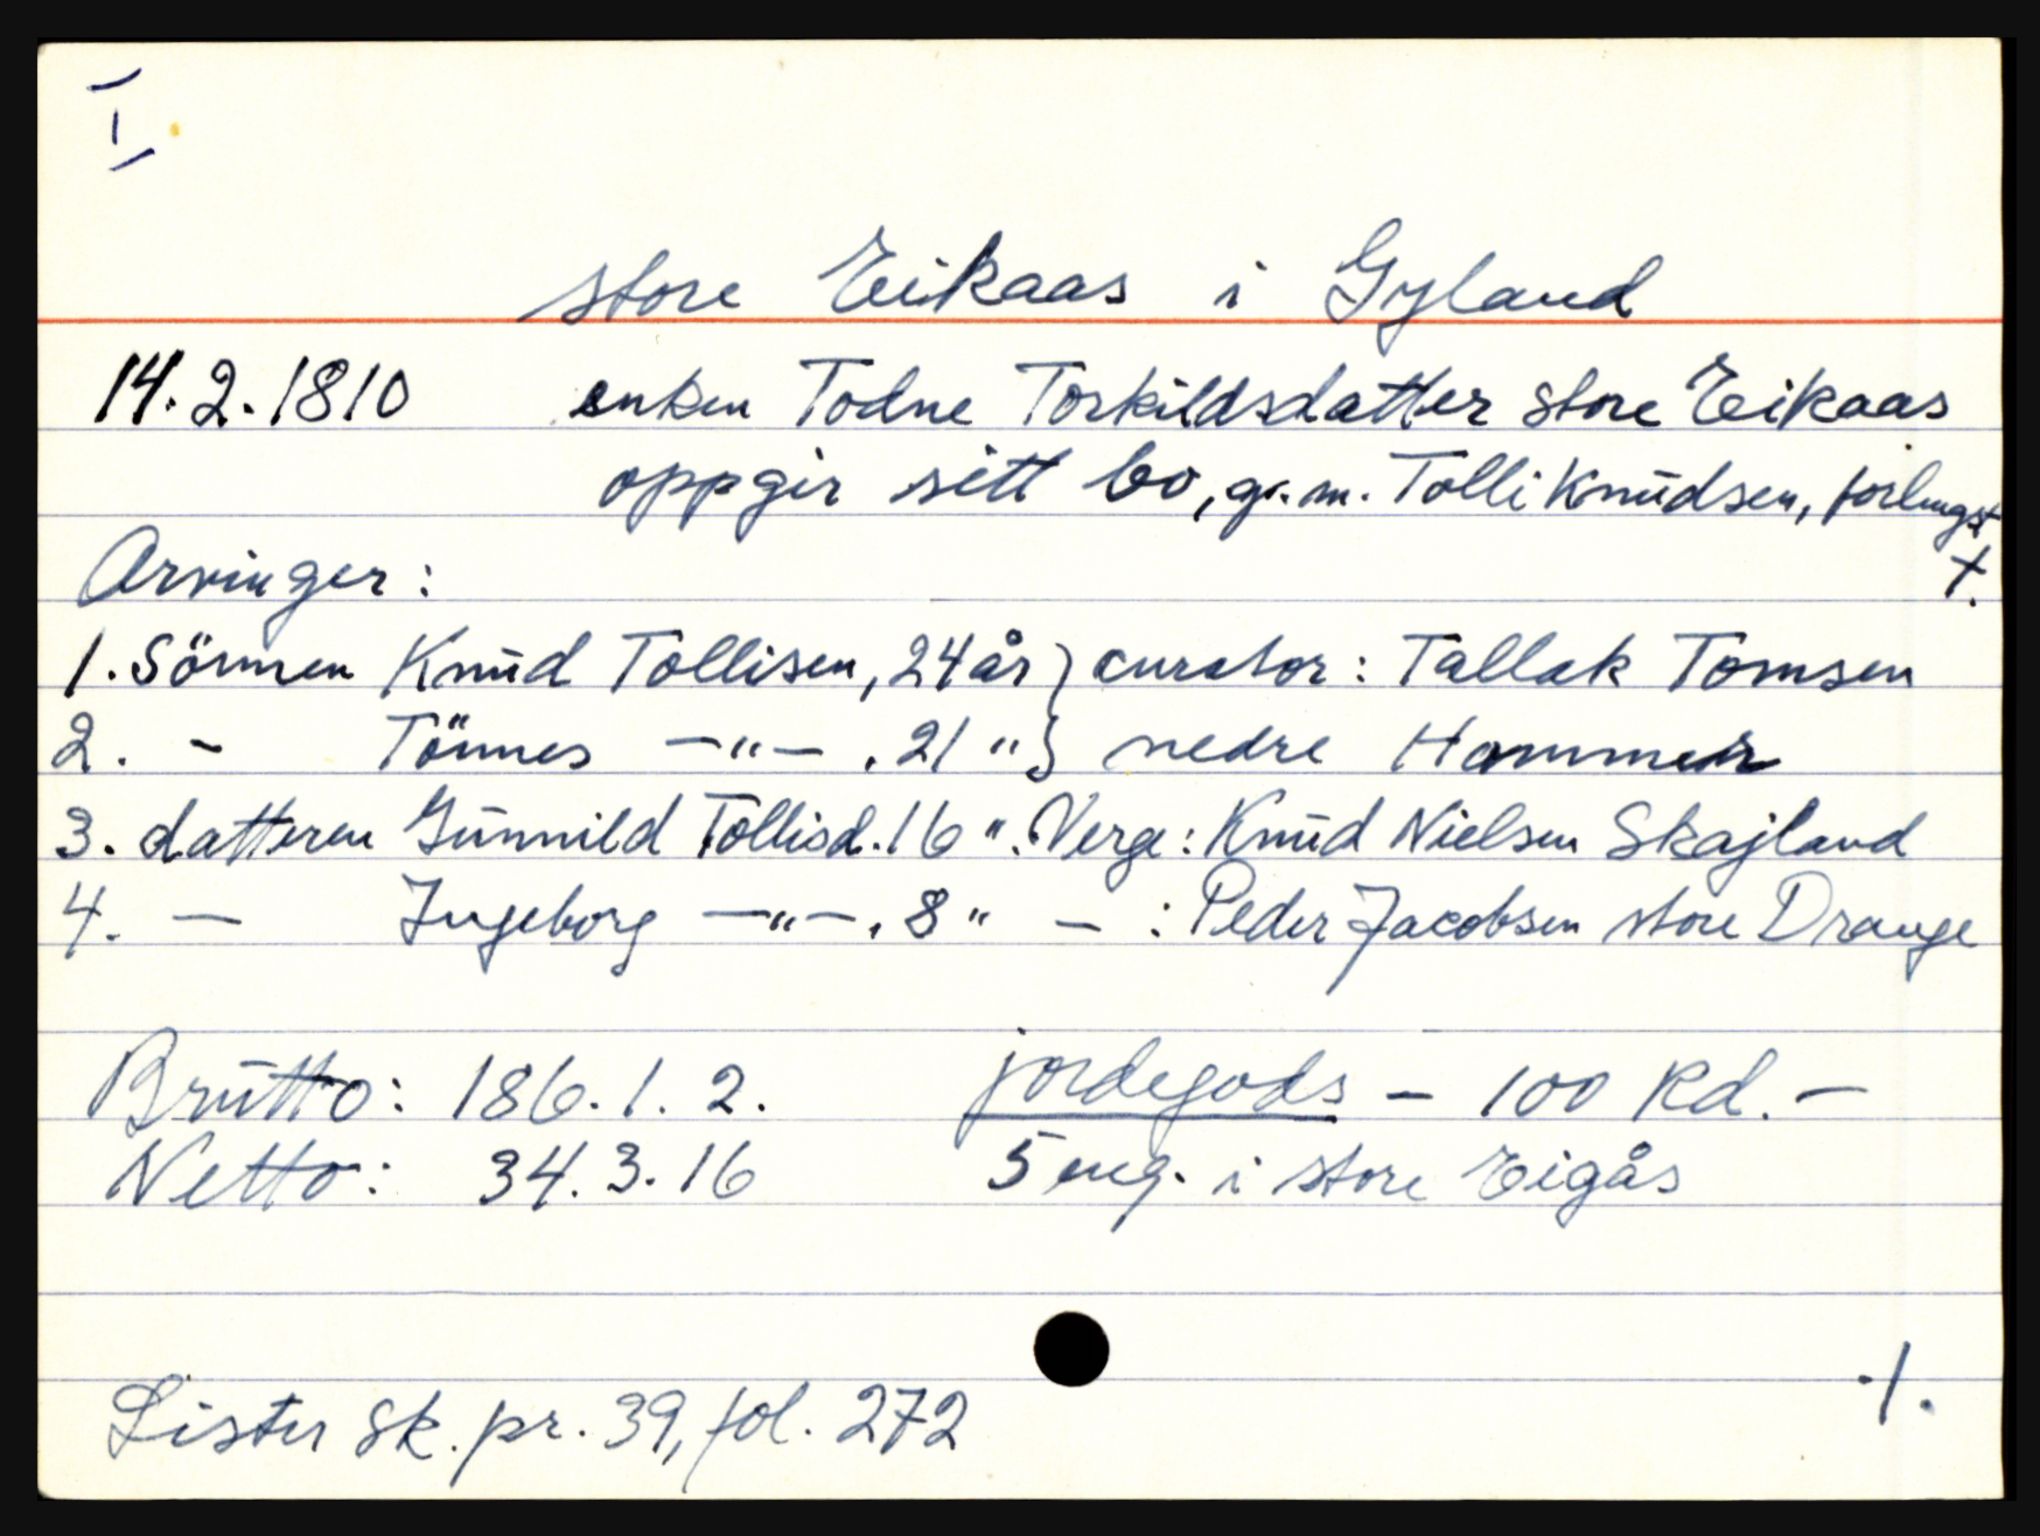 I
store Eikaas i Gyland
14.2.1810 enken Todne Torkildsdatter store Eikaas
oppgir sitt bo, g.m. Tolli Knudsen, forlengst
†.
Arvinger:
1. Sönnen Knud Tollisen, 24 år } curator: Tallak Tomsen
2. - Tönnes -"- , 21 " } nedre Hammer
3. datteren Gunnild Tollisd. 16 ". Verge: Knud Nielsen Skajland
4. — Ingeborg -"- , 8 " - : Peder Jacobsen store Drange
Brutto: 186. 1. 2. jordegods - 100 Rd. -
Netto: 34. 3. 16 5 eng. i store Eigås
./.
Lister sk. pr. 39, fol. 272